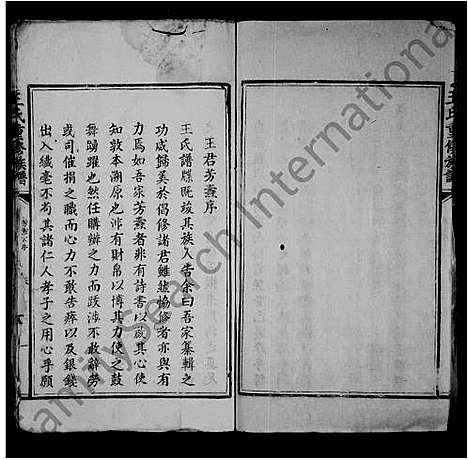 王氏重修族譜
王君芳燾序
王氏譜牒既竣其族人告余曰吾家纂輯之
功咸歸美於倡修諸君雖然協修者亦與有
力焉如吾宗芳燾者非有詩書以啟其心使
知敦本溯原也非有財帛以博其力使之鼓
舞踴躍也然任購辦之力而跋涉不敢辭勞
或司催捐之職而心力不敢告瘁以及銀錢
出入纖毫不苟其諸仁人孝子之用心乎願
王氏重修族譜
Familysearch International